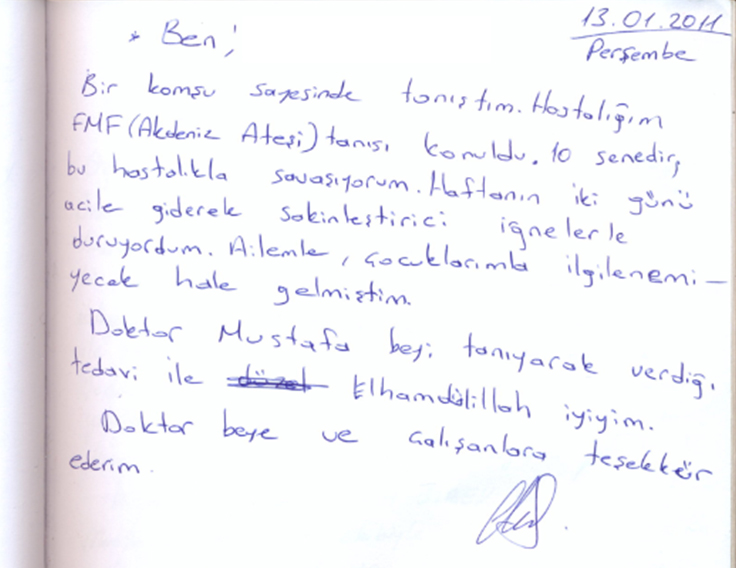 13.01.2011
Perşembe
* Ben!
Bir komşu sayesinde tanıştım. Hastalığım
FMF (Akdeniz Ateşi) tanısı konuldu. 10 senedir,
bu hastalıkla savaşıyorum. Haftanın iki günü
acile giderek sakinleştirici iğnelerle
duruyordum. Ailemle, çocuklarımla ilgilenemi-
yecek hale gelmiştim.
Doktor Mustafa beyi tanıyarak verdiği
tedavi ile Elhamdülillah iyiyim.
Doktor beye ve çalışanlara teşekkür
ederim.